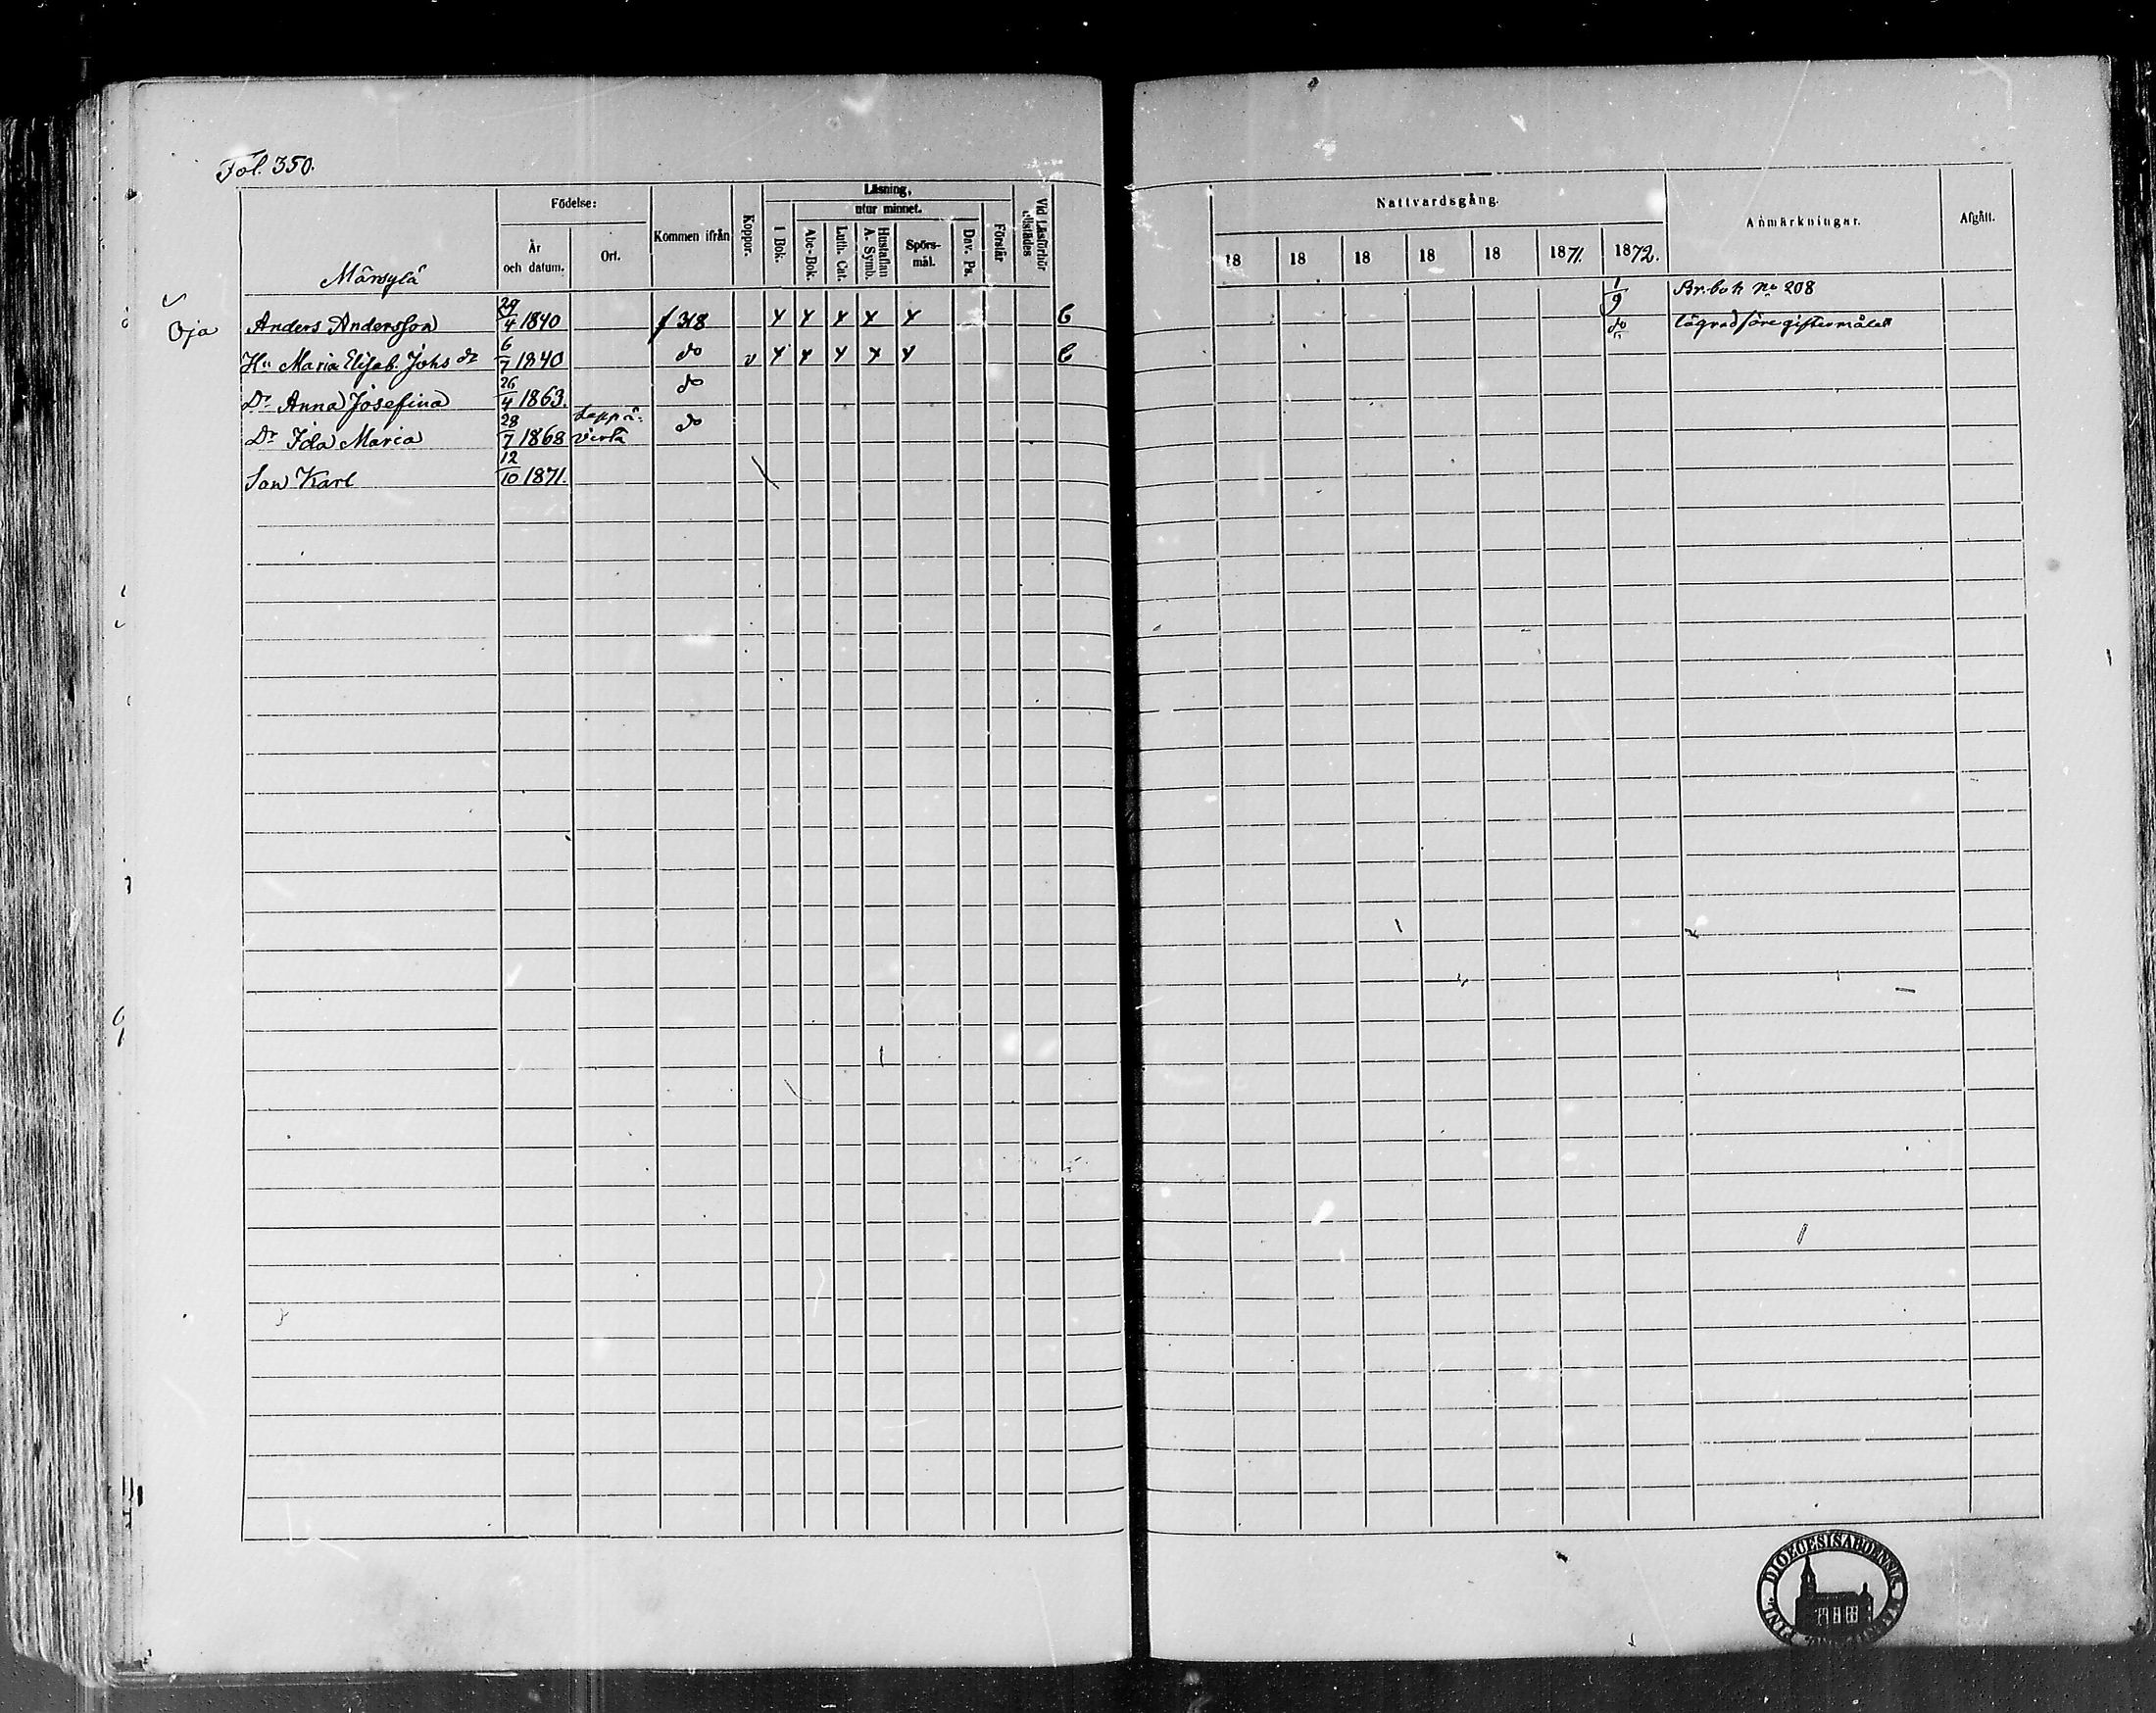 Fol. 350.
Födelse:
Kommen ifrån
Koppor.
Läsning,
utur minnet.
I Bok.
Abc-Bok.
Luth. Cat.
Hustaflan A. Symb.
Spörs-
mål.
Dav. Ps.
Förstår
Vid Läsförhör
År
och datum.
Ort.
Nattvardsgång.
18 18 18 18 18 1871. 1872.
Anmärkningar.
Afgått.
Oja
Anders Andersson 29/4 1840 f 318
1/9 Br.bok No 208
Hu Maria Elisab. Johs dr 6/7 1840 do
do lägrad före giftermålet
Dr Anna Josefina 26/4 1863. do
Dr Ida Maria 28/7 1868 Leppä-
virta do
Son Karl 12/10 1871.
DIOECESIS ABOENSIS